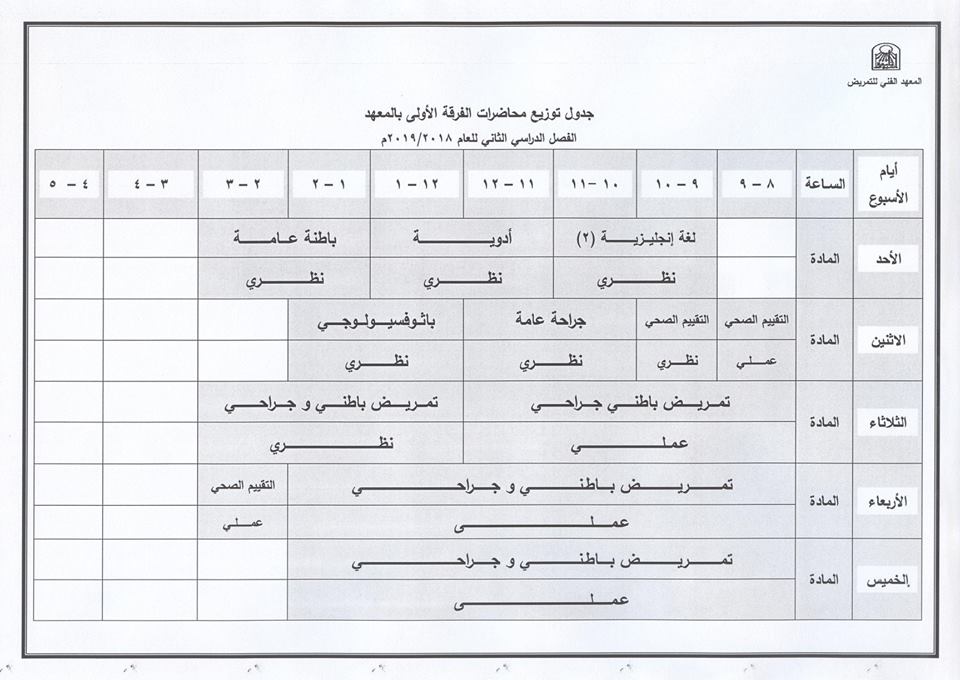 المعهد الفني للتمريض
جدول توزيع محاضرات الفرقة الأولى بالمعهد
الفصل الدراسي الثاني للعام ٢٠١٩/٢٠١٨م
أيام الأسبوع الساعة ٨ - ٩ ٩ - ١٠ ١٠ - ١١ ١١ - ١٢ ١٢ - ١ ١ - ٢ ٢ - ٣ ٣ - ٤ ٤ - ٥
الأحد المادة لغة إنجليزية (٢) أدوية باطنة عامة
نظري نظري نظري
الاثنين المادة التقييم الصحي التقييم الصحي جراحة عامة باثوفسيولوجي
عملي نظري نظري نظري
الثلاثاء المادة تمريض باطني جراحي تمريض باطني و جراحي
عملي نظري
الأربعاء المادة تمريض باطني و جراحي التقييم الصحي
عملى عملي
الخميس المادة تمريض باطني و جراحي
عملى